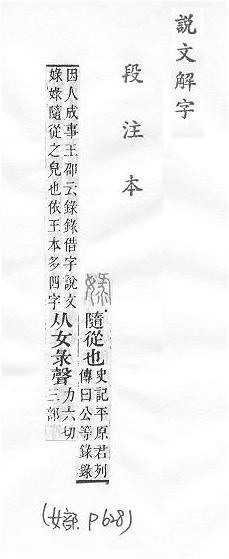 説文解字
段注本
娽
隨從也
史記平原君列
傳曰公等錄錄
因人成事王邵云錄錄借字說文
娽娽隨從之皃也依王本多四字
从女彔聲
力六切
三部
(女部. P628)